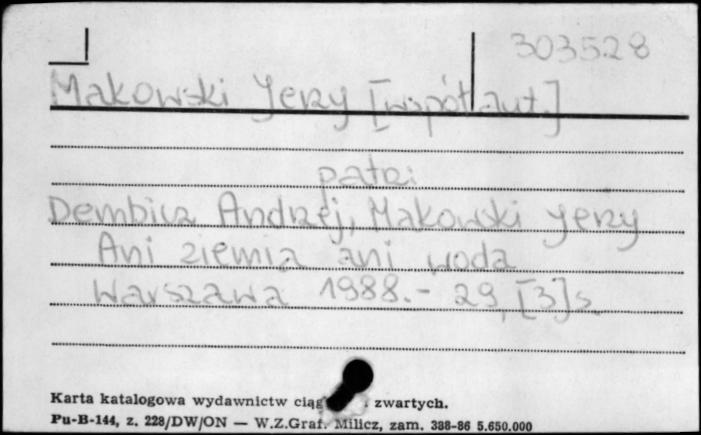 303528
Makowski Jerzy [współaut.]
patrz:
Dembicz Andrzej, Makowski Jerzy
Ani ziemia ani woda
Warszawa 1988.- 29, [3] s.
Karta katalogowa wydawnictw zwartych.
Pu-B-144, z. 228/DW/ON — W.Z.Graf. Milicz, zam. 388-86 5.650.000